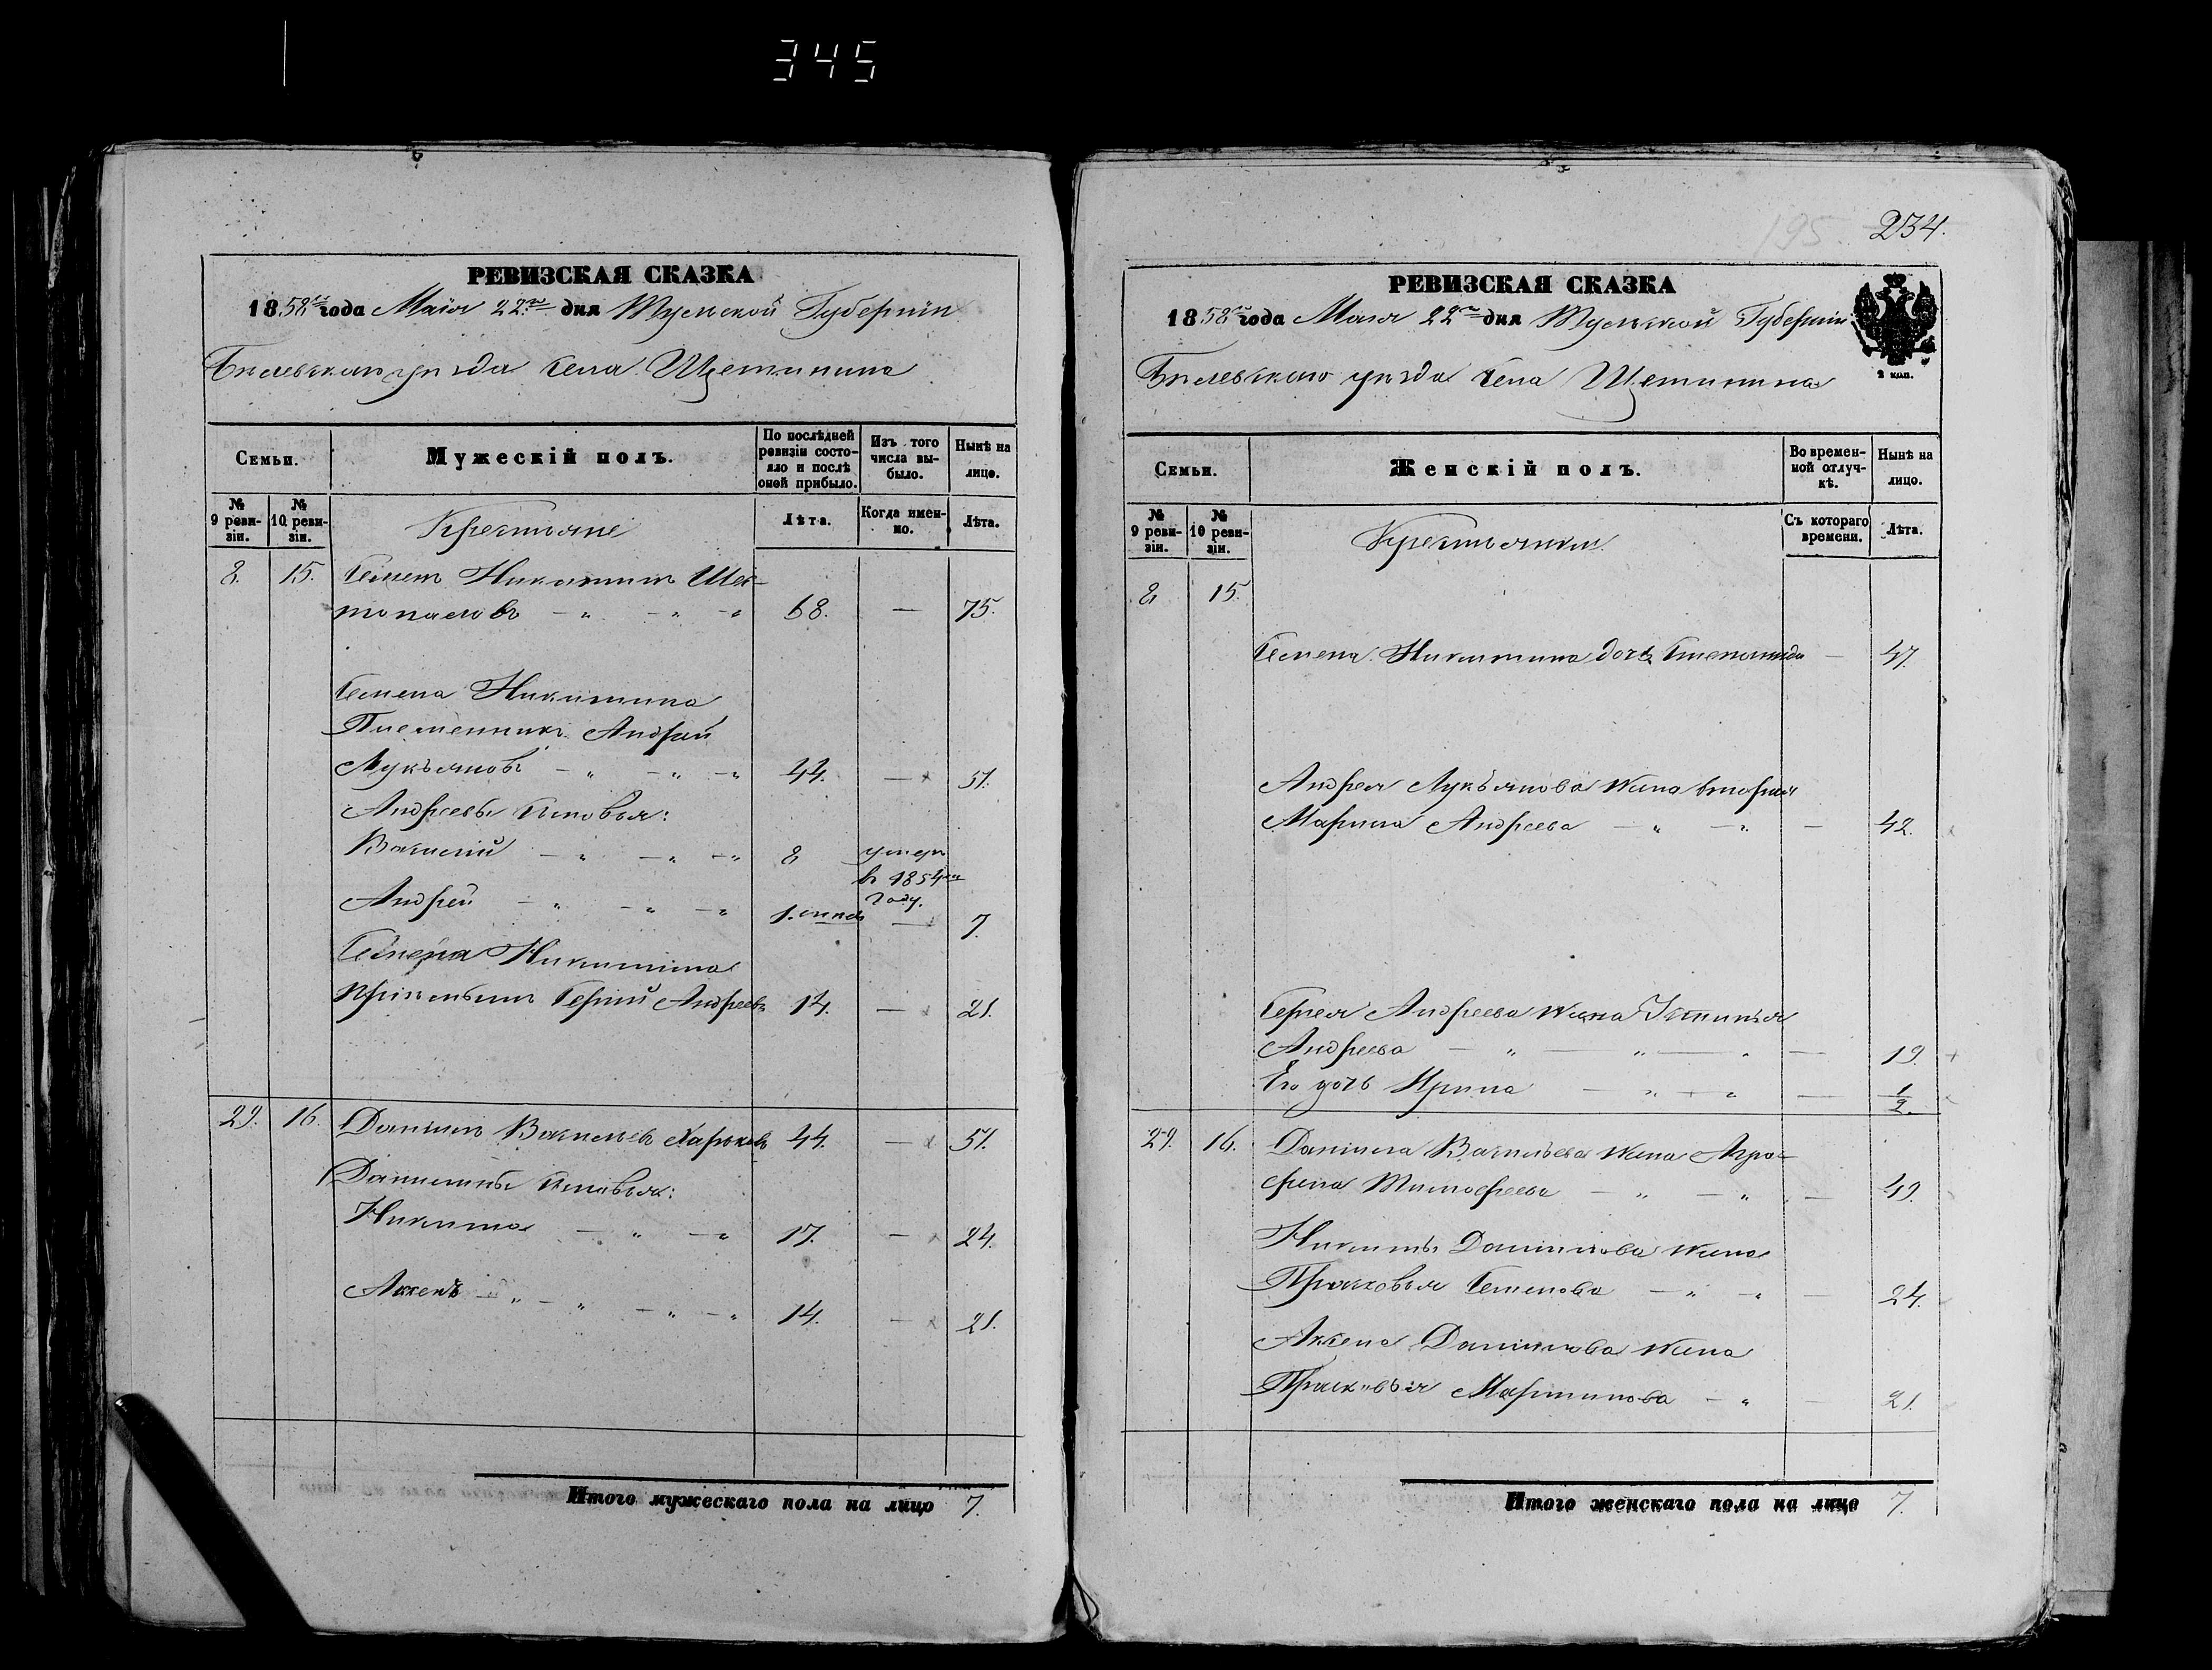 345
195. 234.
РЕВИЗСКАЯ СКАЗКА
1858го года Маія 22го дня Тульской Губерніи
Бѣлевскаго уѣзда села Щетинина
Семьи.
Мужескій полъ.
По послѣдней ревизіи состояло и послѣ оной прибыло.
Изъ того числа выбыло.
Нынѣ на лицо.
№ 9 ревизіи.
№ 10 ревизіи.
Крестьяне
Лѣта.
Когда именно.
Лѣта.
8. 15. Семенъ Никитинъ
68. — 75.
Семена Никитина
Племянникъ Андрей
Лукъяновъ — " — " — " 44. — 51.
Андреевы сыновья:
Василій — " — " — " 8 умеръ
въ 1854м
году.
Андрей — " — " — " 1. — 7.
Семена Никитина
Пріемышъ Сергѣй Андреевъ 14. — 21.
29. 16. Данилъ Васильевъ Харьковъ 44. — 51.
Даниловы сыновья:
Никита — " — " 17. — 24.
Аксенъ — " — " — " — " 14. — 21.
Итого мужескаго пола на лицо 7.
РЕВИЗСКАЯ СКАЗКА
1858го года Маія 22го дня Тульской Губерніи
2 коп.
Бѣлевскаго уѣзда села Щетинина
Семьи.
Женскій полъ.
Во временной отлучкѣ.
Нынѣ на лицо.
№ 9 ревизіи.
№ 10 ревизіи.
Крестьянки
Съ котораго времени.
Лѣта.
8 15.
Семена Никитина дочь Степанида — 47.
Андрея Лукъянова жена вторая
Марина Андреева — " — " — 42.
Сергея Андреева жена Устинья
Андреева — " — " — " — 19.
Его дочь Ирина — " — " — 1/2.
29. 16. Данила Васильева жена Агра-
фена Тимофеева — " — " — 49.
Никиты Данилова жена
Прасковья Семенова — " — " — 24.
Аксена Данилова жена
Прасковья Мартинова — " — 21.
Итого женскаго пола на лицо 7.